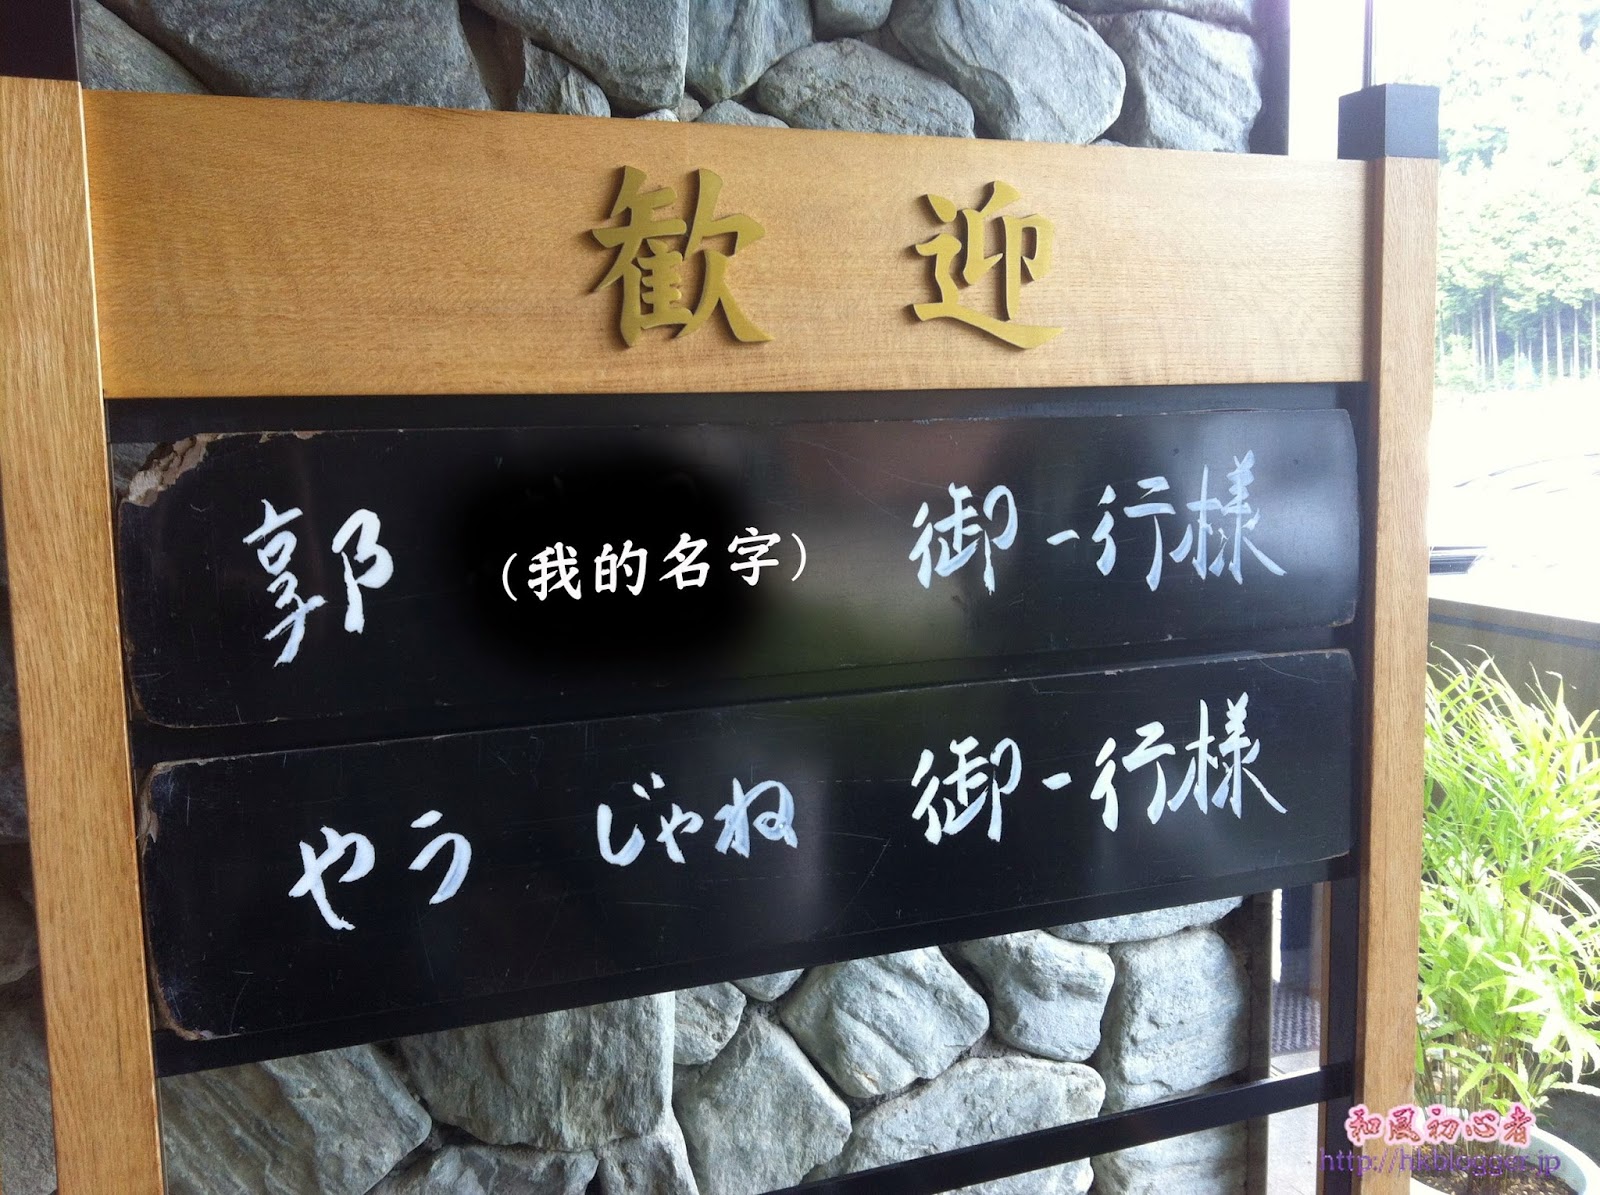 歓迎
郭 (我的名字) 御一行様
やう じゃね 御一行様
和風初心者
http://hkblogger.jp